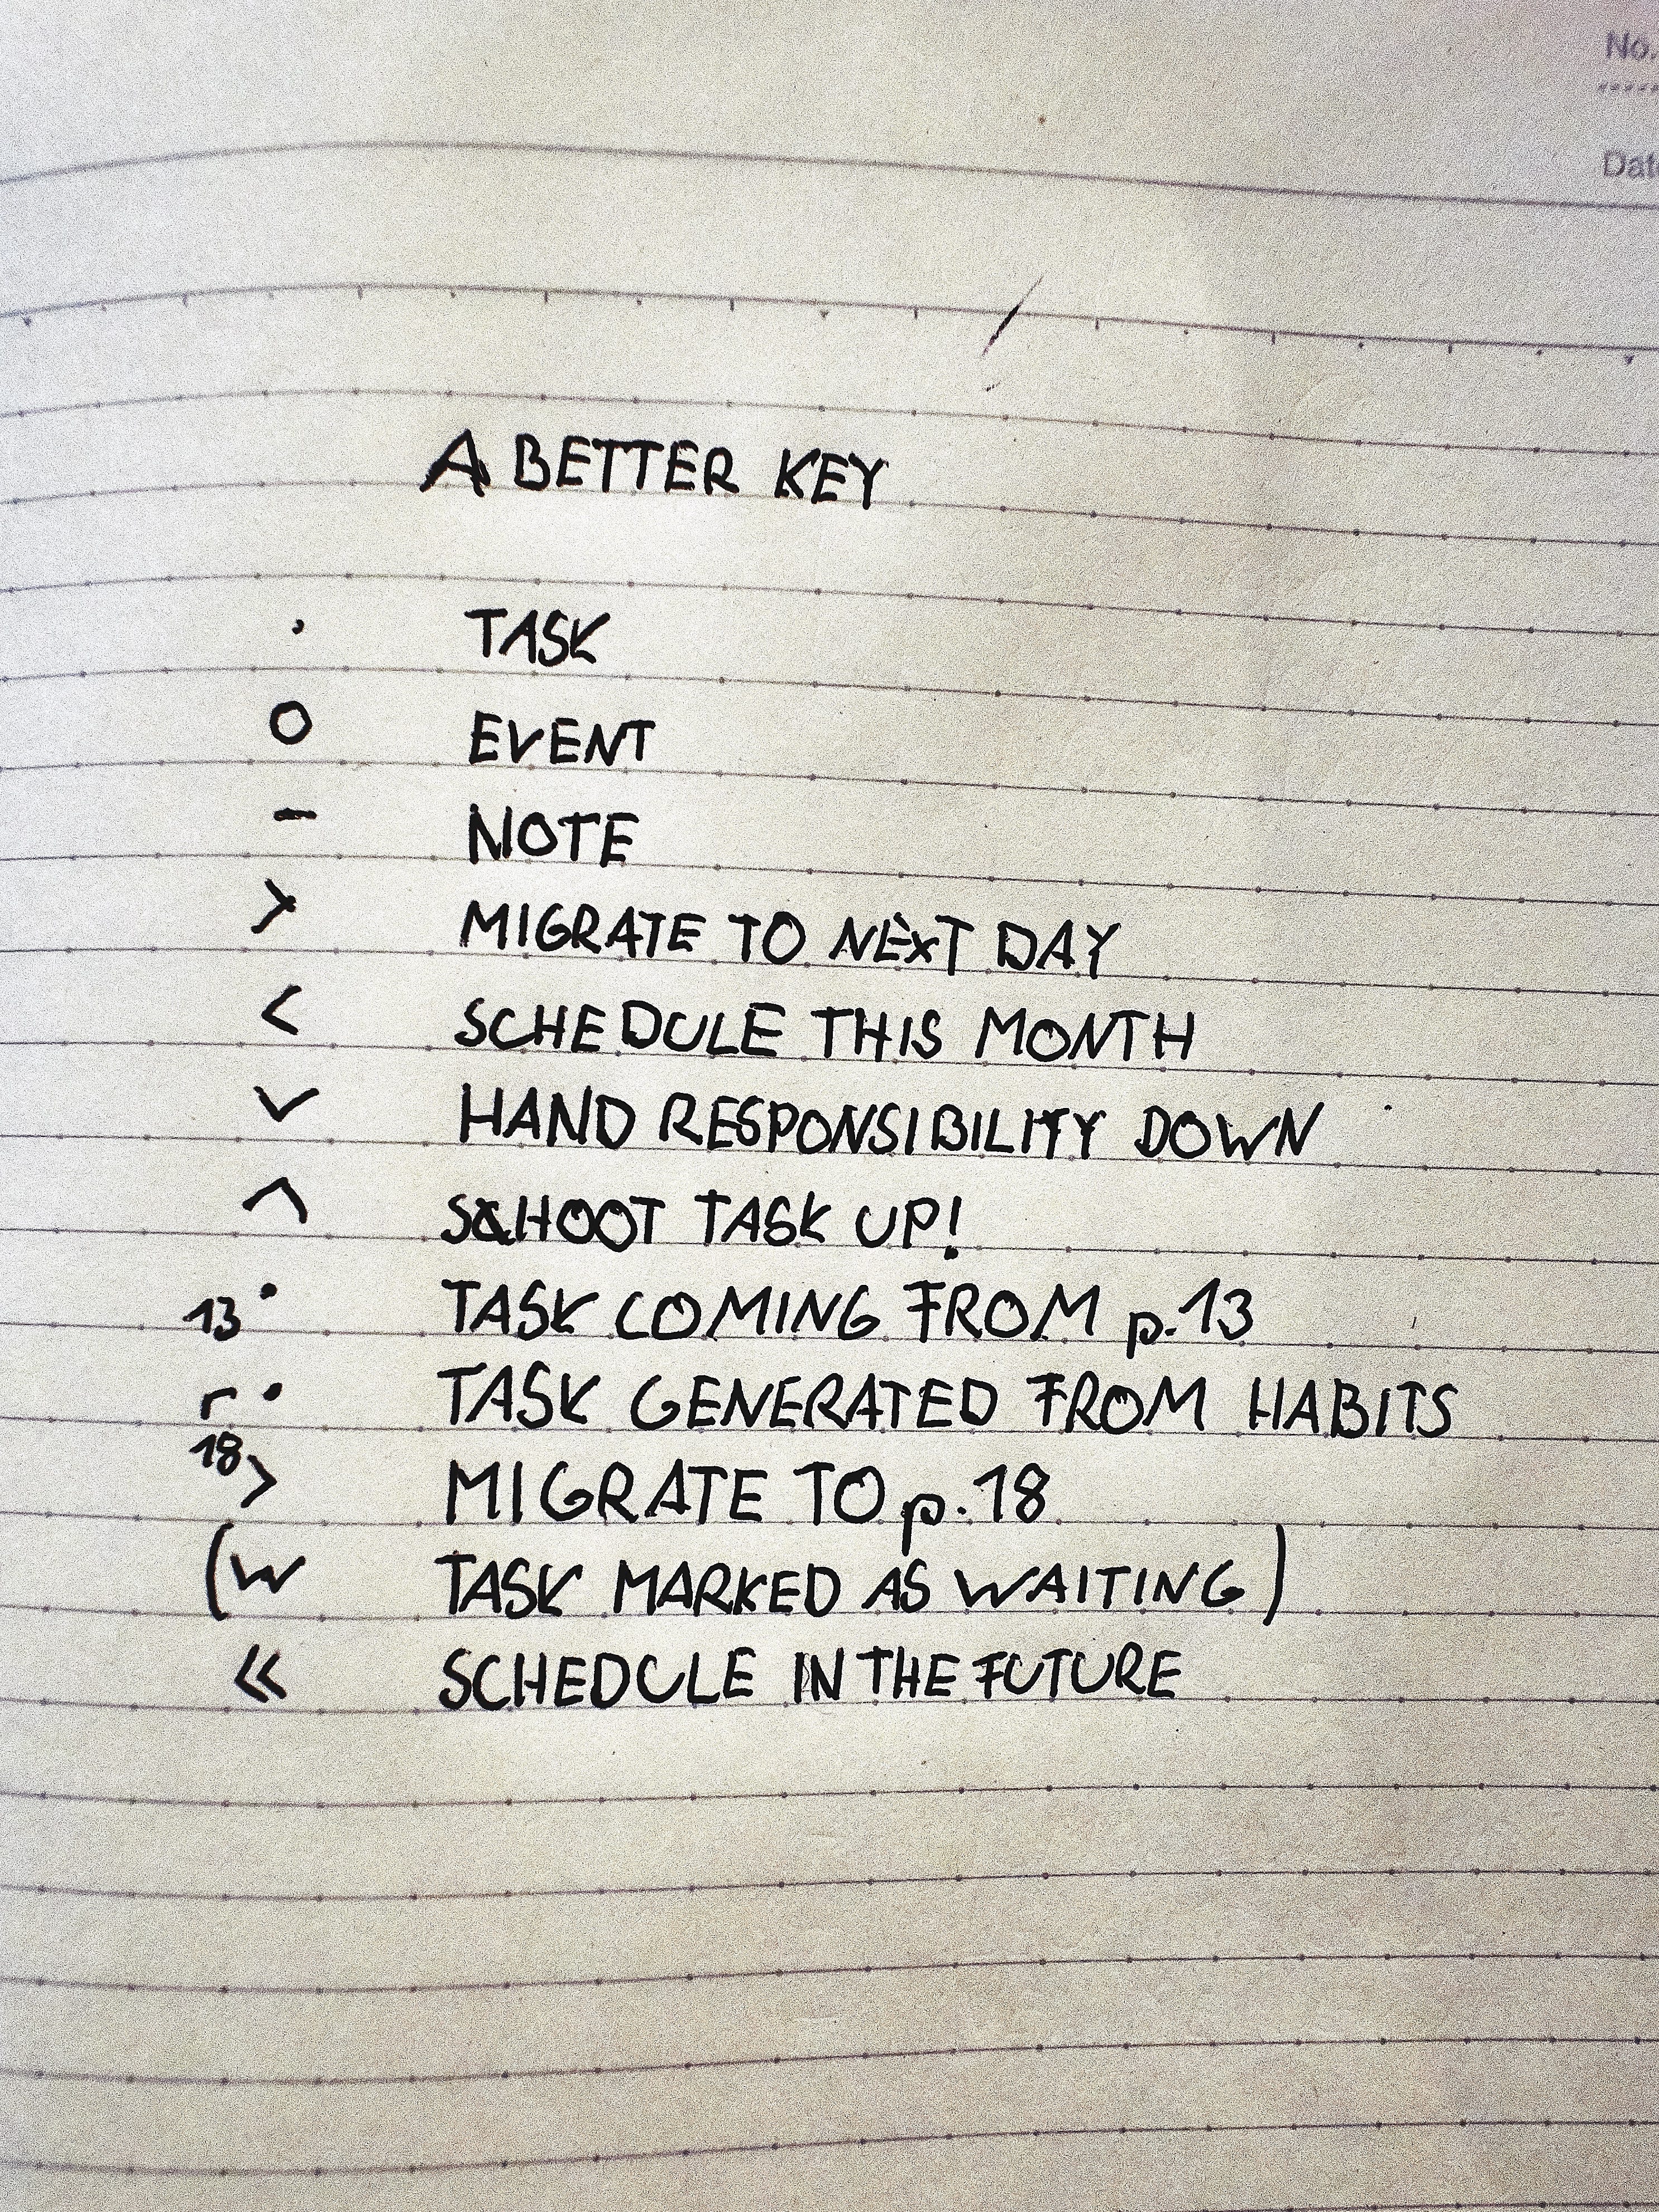 No.
Date
A BETTER KEY
· TASK
O EVENT
- NOTE
> MIGRATE TO NEXT DAY
< SCHEDULE THIS MONTH
∨ HAND RESPONSIBILITY DOWN
∧ SHOOT TASK UP!
13 · TASK COMING FROM p.13
r · TASK GENERATED FROM HABITS
18 > MIGRATE TO p.18
(W TASK MARKED AS WAITING)
<< SCHEDULE IN THE FUTURE